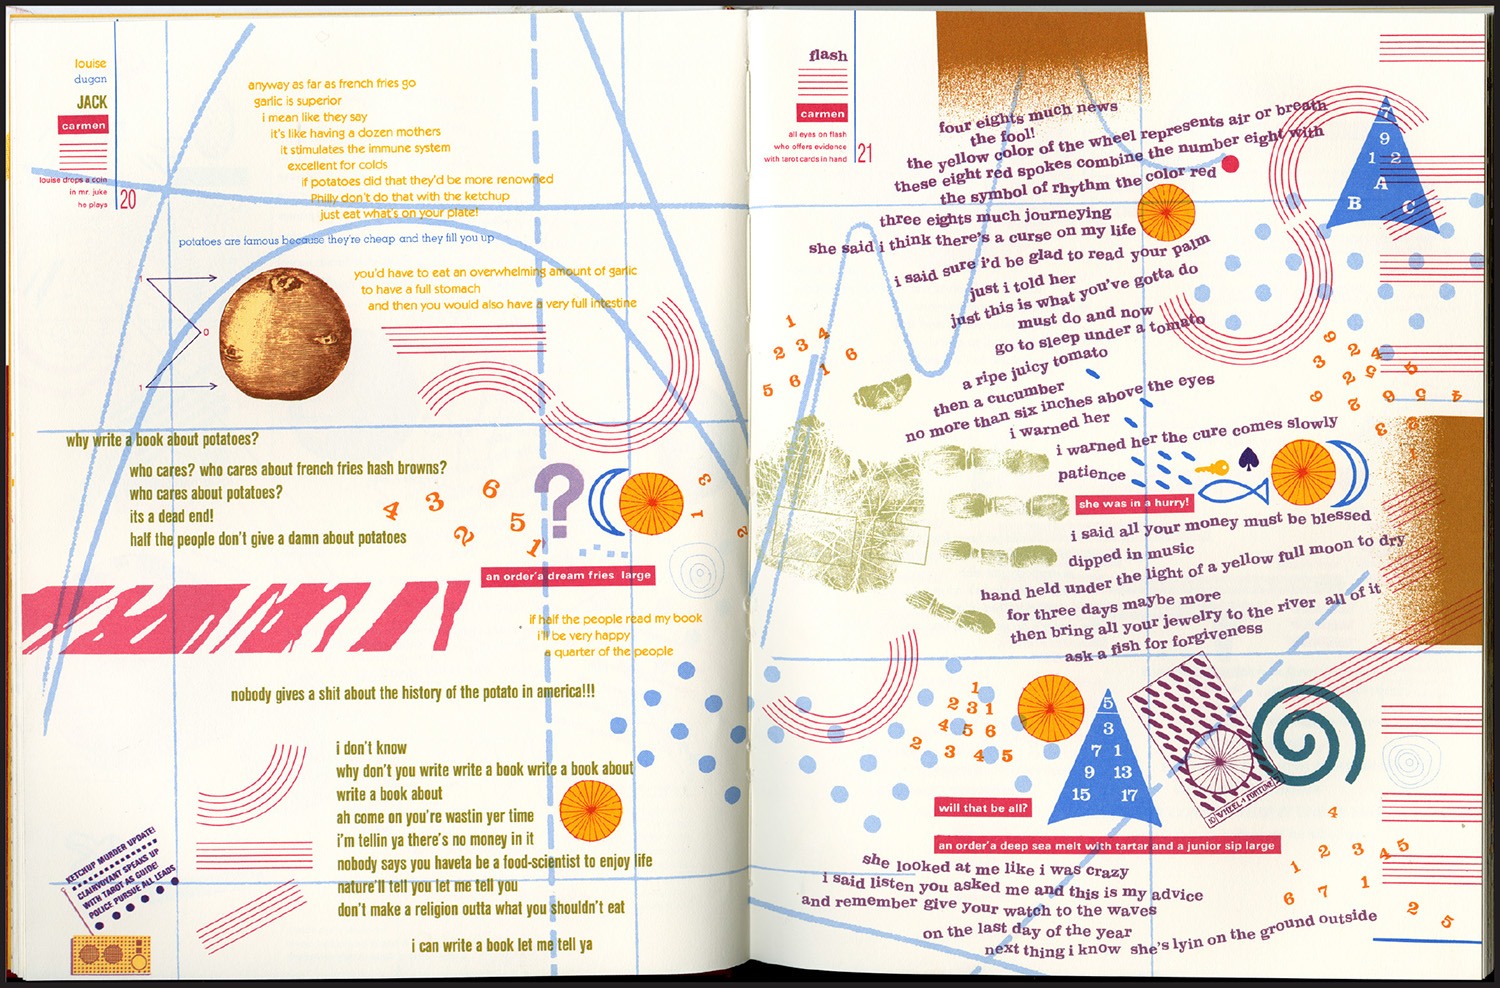 louise
dugan
JACK
carmen
louise drops a coin
in mr. juke
he plays
20
anyway as far as french fries go
garlic is superior
i mean like they say
it's like having a dozen mothers
it stimulates the immune system
excellent for colds
if potatoes did that they'd be more renowned
Philly don't do that with the ketchup
just eat what's on your plate!
potatoes are famous because they're cheap and they fill you up
you'd have to eat an overwhelming amount of garlic
to have a full stomach
and then you would also have a very full intestine
1
0
1
why write a book about potatoes?
who cares? who cares about french fries hash browns?
who cares about potatoes?
its a dead end!
half the people don't give a damn about potatoes
4 3 6
2 5 1
?
3
1
2
an order'a dream fries large
if half the people read my book
i'll be very happy
a quarter of the people
nobody gives a shit about the history of the potato in america!!!
i don't know
why don't you write write a book write a book about
write a book about
ah come on you're wastin yer time
i'm tellin ya there's no money in it
nobody says you haveta be a food-scientist to enjoy life
nature'll tell you let me tell you
don't make a religion outta what you shouldn't eat
i can write a book let me tell ya
KETCHUP MURDER UPDATE!
CLAIRVOYANT SPEAKS UP
WITH TAROT AS GUIDE!
POLICE PURSUE ALL LEADS
flash
carmen
all eyes on flash
who offers evidence
with tarot cards in hand
21
four eights much news
the fool!
the yellow color of the wheel represents air or breath
these eight red spokes combine the number eight with
the symbol of rhythm the color red
three eights much journeying
she said i think there's a curse on my life
i said sure i'd be glad to read your palm
just i told her
just this is what you've gotta do
must do and now
go to sleep under a tomato
a ripe juicy tomato
then a cucumber
no more than six inches above the eyes
i warned her
i warned her the cure comes slowly
patience
7
9
1 2
A
B C
1
2 3 4
5 6 1 6
she was in a hurry!
i said all your money must be blessed
dipped in music
hand held under the light of a yellow full moon to dry
for three days maybe more
then bring all your jewelry to the river all of it
ask a fish for forgiveness
1
2 3 1
4 5 6
2 3 4 5
5
3
7 1
9 13
15 17
WHEEL of FORTUNE
will that be all?
an order'a deep sea melt with tartar and a junior sip large
she looked at me like i was crazy
i said listen you asked me and this is my advice
and remember give your watch to the waves
on the last day of the year
next thing i know she's lyin on the ground outside
4
1 2 3 4 5
6 7 1
2 5